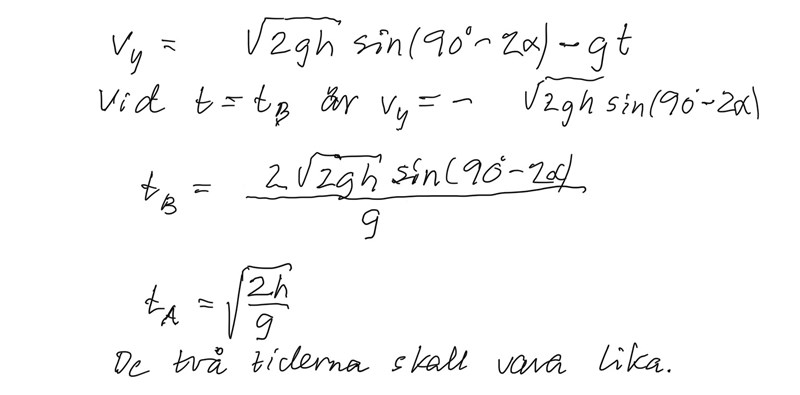 v_y = √(2gh) sin(90° - 2α) - gt
Vid t = t_B är v_y = - √(2gh) sin(90° - 2α)
t_B = 2√(2gh) sin(90° - 2α) / g
t_A = √(2h/g)
De två tiderna skall vara lika.